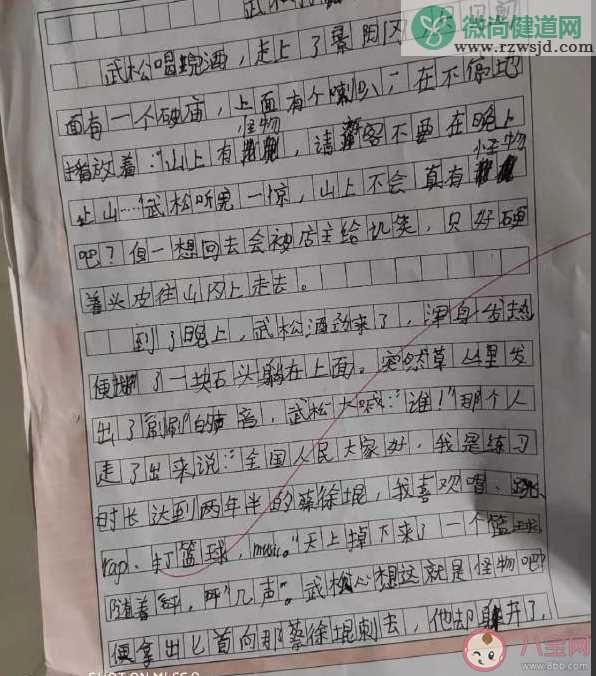 微尚健道网
www.rzwsjd.com
武松
武松喝晚酒，走上了景阳冈，
面有一个破庙，上面有个喇叭，在不停地
怪物
播放着："山上有，请客不要在晚上
怪物
上山…"武松听完一惊，山上不会真有
吧？但一想回去会被店主给讥笑，只好硬
着头皮往山冈上走去。
到了晚上，武松酒劲来了，浑身发热
便了一块石头躺在上面。突然草丛里发
出了"刷刷"的声音，武松大喊："谁！"那个人
走了出来说："全国人民大家好，我是练习
时长达到两年半的蔡徐坤，我喜欢唱、跳、
rap、打篮球，music。"天上掉下来了一个篮球
随着"砰，砰"几声。武松心想这就是怪物吧？
便拿出匕首向那蔡徐坤刺去，他却躲开了，
SHOT ON MI 5CG
八宝网
www.8bb.com